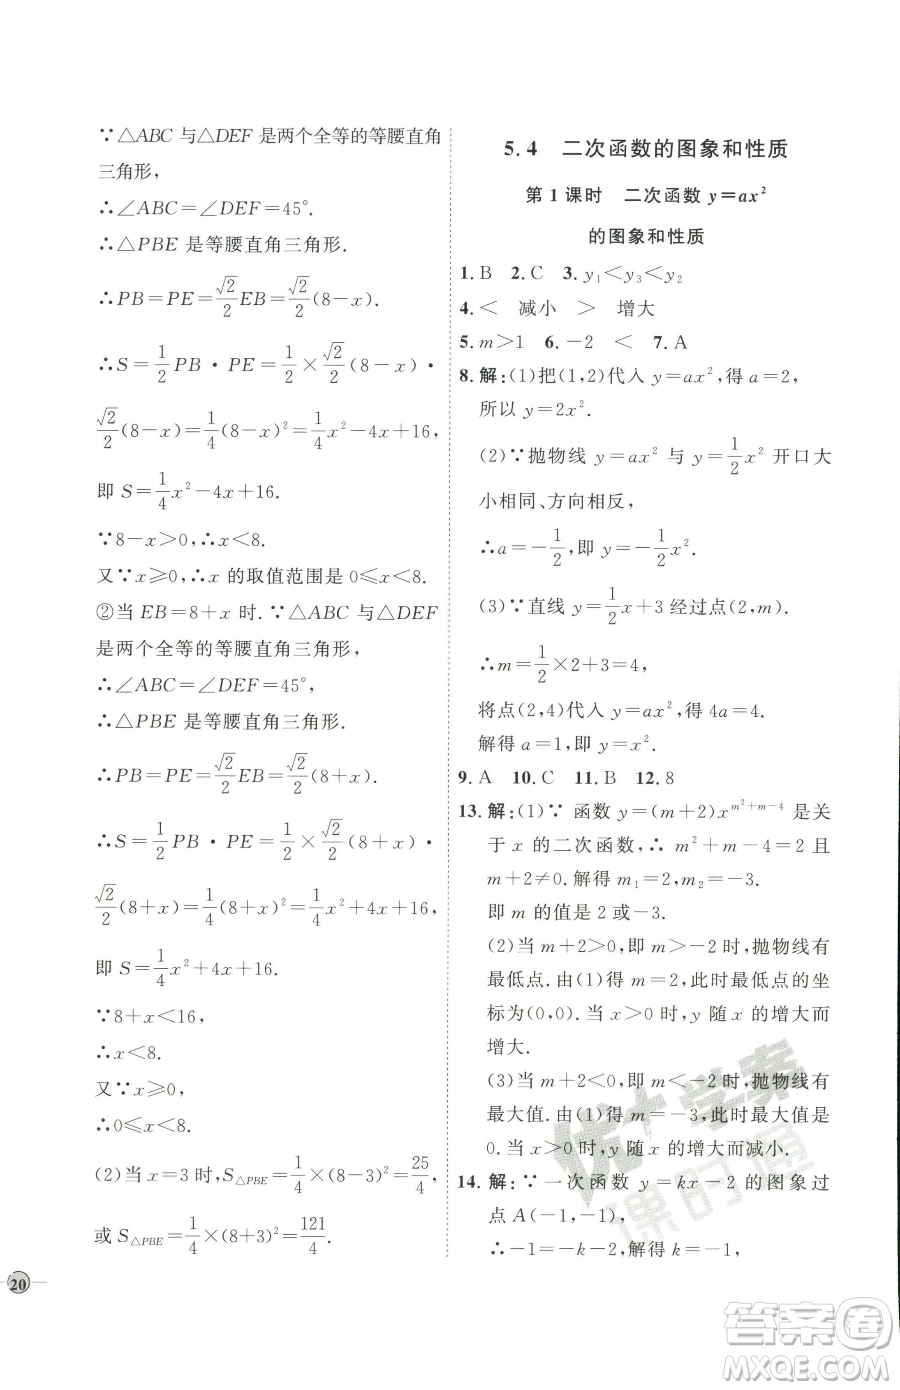 ∵△ABC 与△DEF 是两个全等的等腰直角
三角形,
∴∠ABC=∠DEF=45°.
∴△PBE 是等腰直角三角形.
∴PB=PE=√2/2 EB=√2/2(8-x).
∴S=1/2 PB·PE=1/2×√2/2(8-x)·
√2/2(8-x)=1/4(8-x)²=1/4x²-4x+16,
即 S=1/4x²-4x+16.
∵8-x>0,∴x<8.
又∵x≥0,∴x 的取值范围是 0≤x<8.
②当 EB=8+x 时.∵△ABC 与△DEF
是两个全等的等腰直角三角形,
∴∠ABC=∠DEF=45°,
∴△PBE 是等腰直角三角形.
∴PB=PE=√2/2 EB=√2/2(8+x).
∴S=1/2 PB·PE=1/2×√2/2(8+x)·
√2/2(8+x)=1/4(8+x)²=1/4x²+4x+16,
即 S=1/4x²+4x+16.
∵8+x<16,
∴x<8.
又∵x≥0,
∴0≤x<8.
(2)当 x=3 时,S△PBE=1/4×(8-3)²=25/4,
或 S△PBE=1/4×(8+3)²=121/4.
20
5.4 二次函数的图象和性质
第 1 课时 二次函数 y=ax²
的图象和性质
1.B 2.C 3.y₁<y₃<y₂
4.< 减小 > 增大
5.m>1 6.-2 < 7.A
8.解:(1)把(1,2)代入 y=ax²,得 a=2,
所以 y=2x².
(2)∵抛物线 y=ax² 与 y=1/2x² 开口大
小相同、方向相反,
∴a=-1/2,即 y=-1/2x².
(3)∵直线 y=1/2x+3 经过点(2,m).
∴m=1/2×2+3=4,
将点(2,4)代入 y=ax²,得 4a=4.
解得 a=1,即 y=x².
9.A 10.C 11.B 12.8
13.解:(1)∵函数 y=(m+2)x^(m²+m-4) 是关
于 x 的二次函数,∴m²+m-4=2 且
m+2≠0.解得 m₁=2,m₂=-3.
即 m 的值是 2 或-3.
(2)当 m+2>0,即 m>-2 时,抛物线有
最低点.由(1)得 m=2,此时最低点的坐
标为(0,0).当 x>0 时,y 随 x 的增大而
增大.
(3)当 m+2<0,即 m<-2 时,抛物线有
最大值.由(1)得 m=-3,此时最大值为
0.当 x>0 时,y 随 x 的增大而减小.
14.解:∵一次函数 y=kx-2 的图象过
点 A(-1,-1),
∴-1=-k-2,解得 k=-1,
优+学案
课时通
答案圈
MXQE.COM